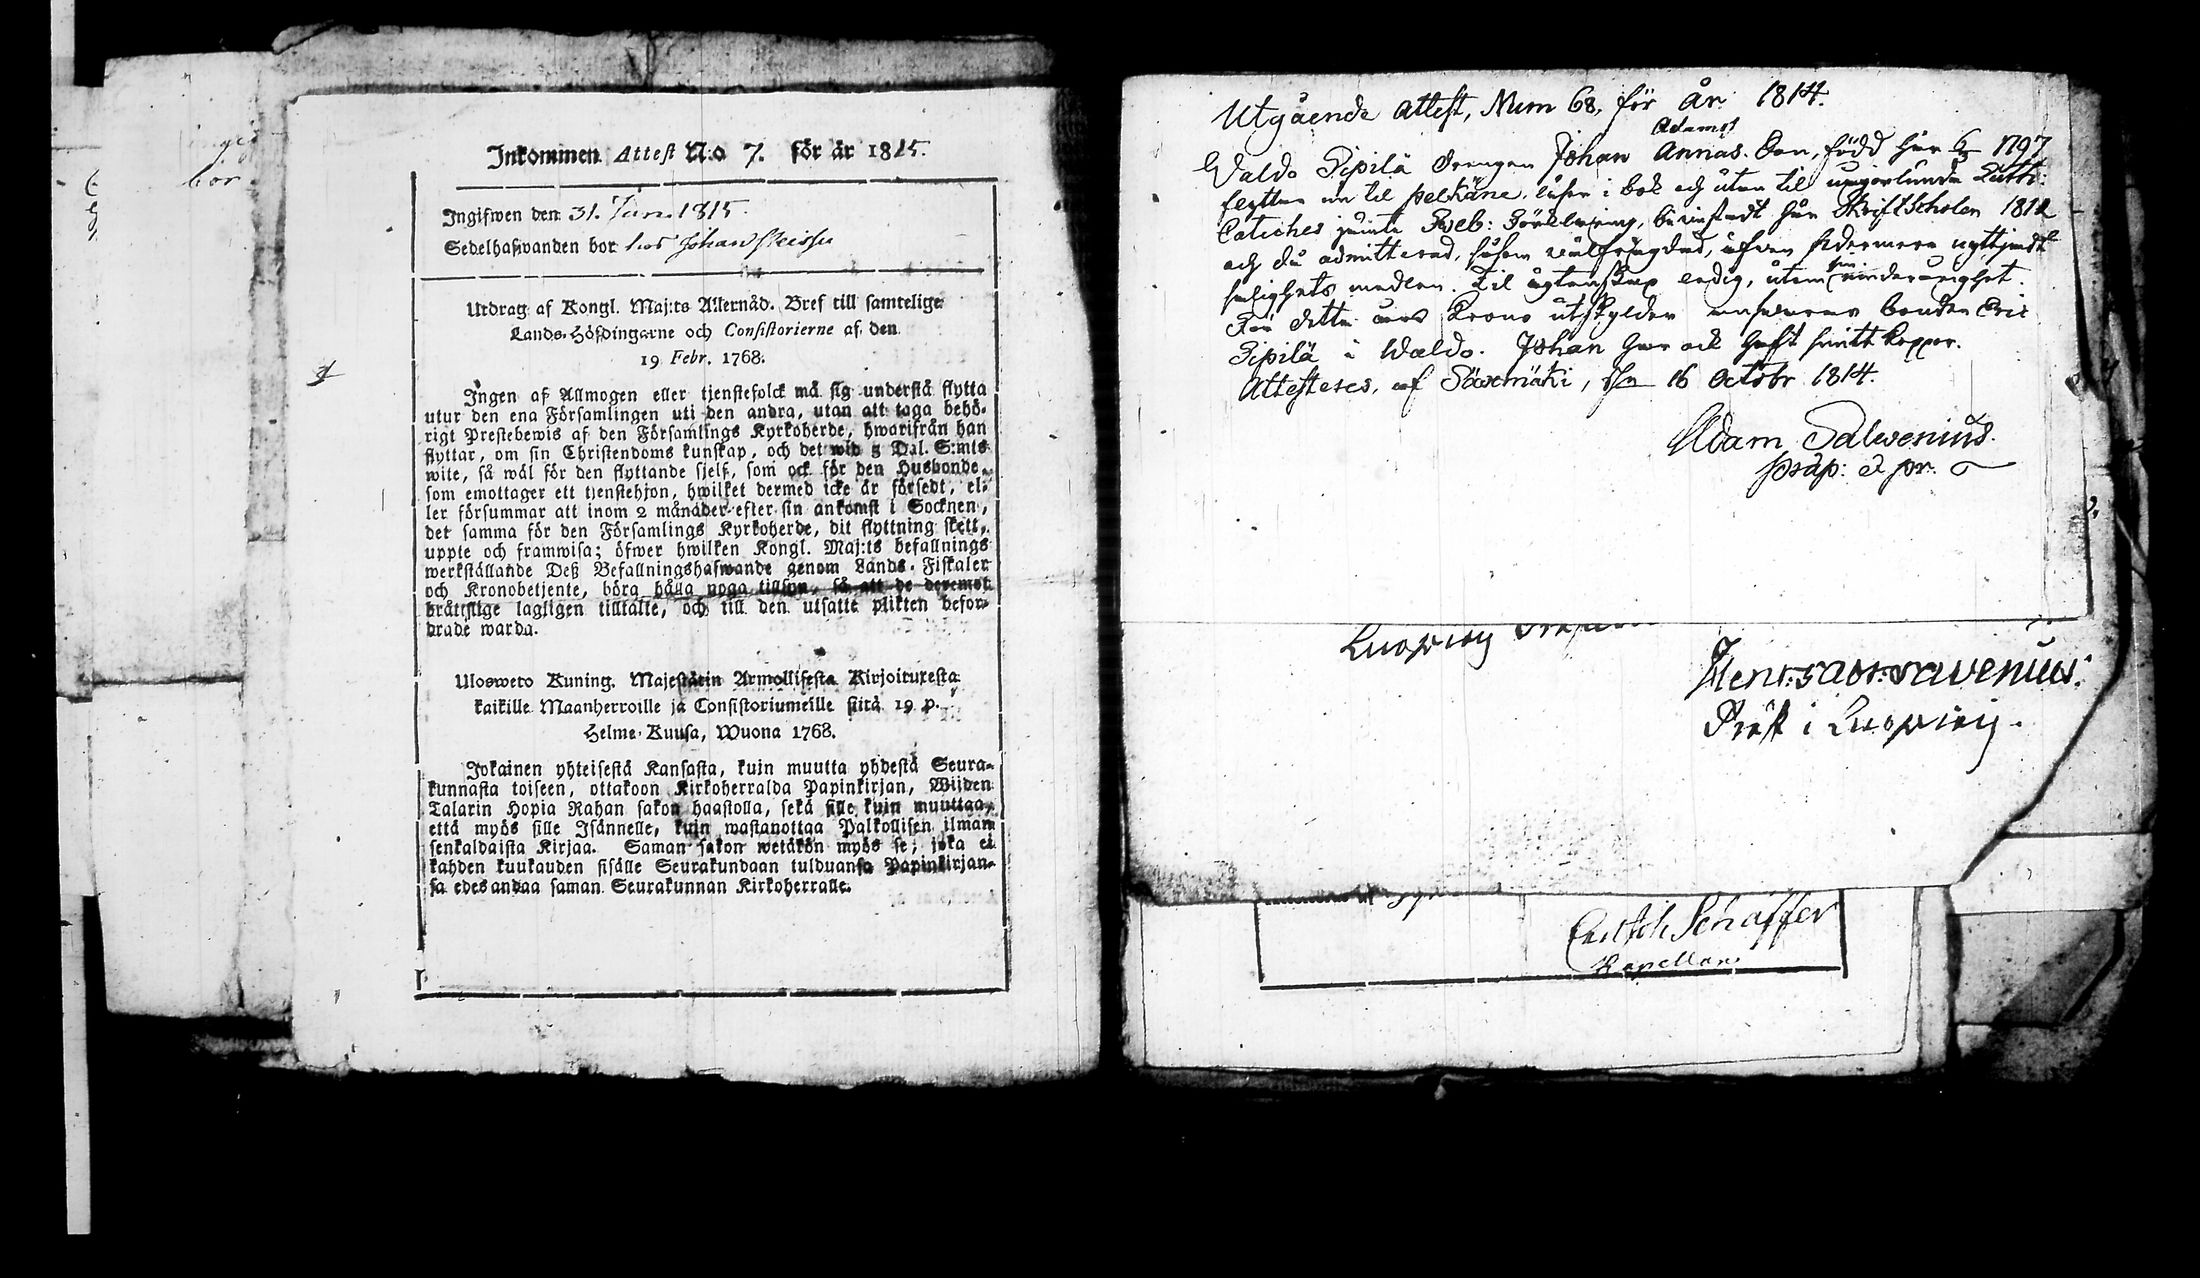 Inkommen Attest N:o 7. för år 1815.
Ingifwen den 31. Jan. 1815.
Sedelhafwanden bor hos Johan
Utdrag af Kongl. Maj:ts Allernåd. Bref till samtelige
Lands-Höfdingarne och Consistorierne af den
19 Febr. 1768.
Ingen af Allmogen eller tjenstefolck må sig understå flytta
utur den ena Församlingen uti den andra, utan att taga behö-
rigt Prestebewis af den Församlings Kyrkoherde, hwarifrån han
flyttar, om sin Christendoms kunskap, och det wid 5 Dal. S:mts
wite, så wäl för den flyttande sjelf, som ock för den Husbonde,
som emottager ett tjenstehjon, hwilket dermed icke är försedt, el-
ler försummar att inom 2 månader efter sin ankomst i Socknen,
det samma för den Församlings Kyrkoherde, dit flyttning skett,
uppte och framwisa; öfwer hwilken Kongl. Maj:ts befallnings
werkställande Deß Befallningshafwande genom Lands-Fiskaler
och Kronobetjente, böra hålla noga tillsyn, så att de deremot
bråttslige lagligen tilltalte, och till den utsatte plikten befor-
drade warda.
Ulosweto Kuning. Majestätin Armollisesta Kirjoituxesta
kaikille Maanherroille ja Consistoriumeille siitä 19 p.
Helme-Kuusa, Wuona 1768.
Jokainen yhteisestä Kansasta, kuin muutta yhdestä Seura-
kunnasta toiseen, ottakoon Kirkoherralda Papinkirjan, Wiiden
Talarin Hopia Rahan sakon haastolla, sekä sille kuin muuttaa,
että myös sille Isännelle, kuin wastanottaa Palkollisen ilman
senkaldaista Kirjaa. Saman sakon wetäkön myös se, joka ei
kahden kuukauden sisälle Seurakundaan tulduansa Papinkirjan-
sa edesandaa saman Seurakunnan Kirkoherralle.
Utgående attest, Num 68, för år 1814.
Adams
Waldo Pipilä Drengen Johan Annas. Son, född här 1797
flyttar nu til Pelkäne, läser i bok och utan til Lutth:
Catiches jämte Sveb: Förklaring, bevistadt här Skriftscholan 1812
och då admitterad, såsom välfrägdad, äfven sedermera nyttjadt
salighets medlen. Til ägtenskap ledig, utom sin
För detta års Krono utskylder ansvarar bonden Eric
Pipilä i Waldo. Johan har ock haft Koppor.
Attesteres, af Sääxmäki, d. 16 Octobr 1814.
Adam Salvenius.
præp: & pr.
Kuopvisy
Præst i Kuopvisy.
Schäffer
Kapellan